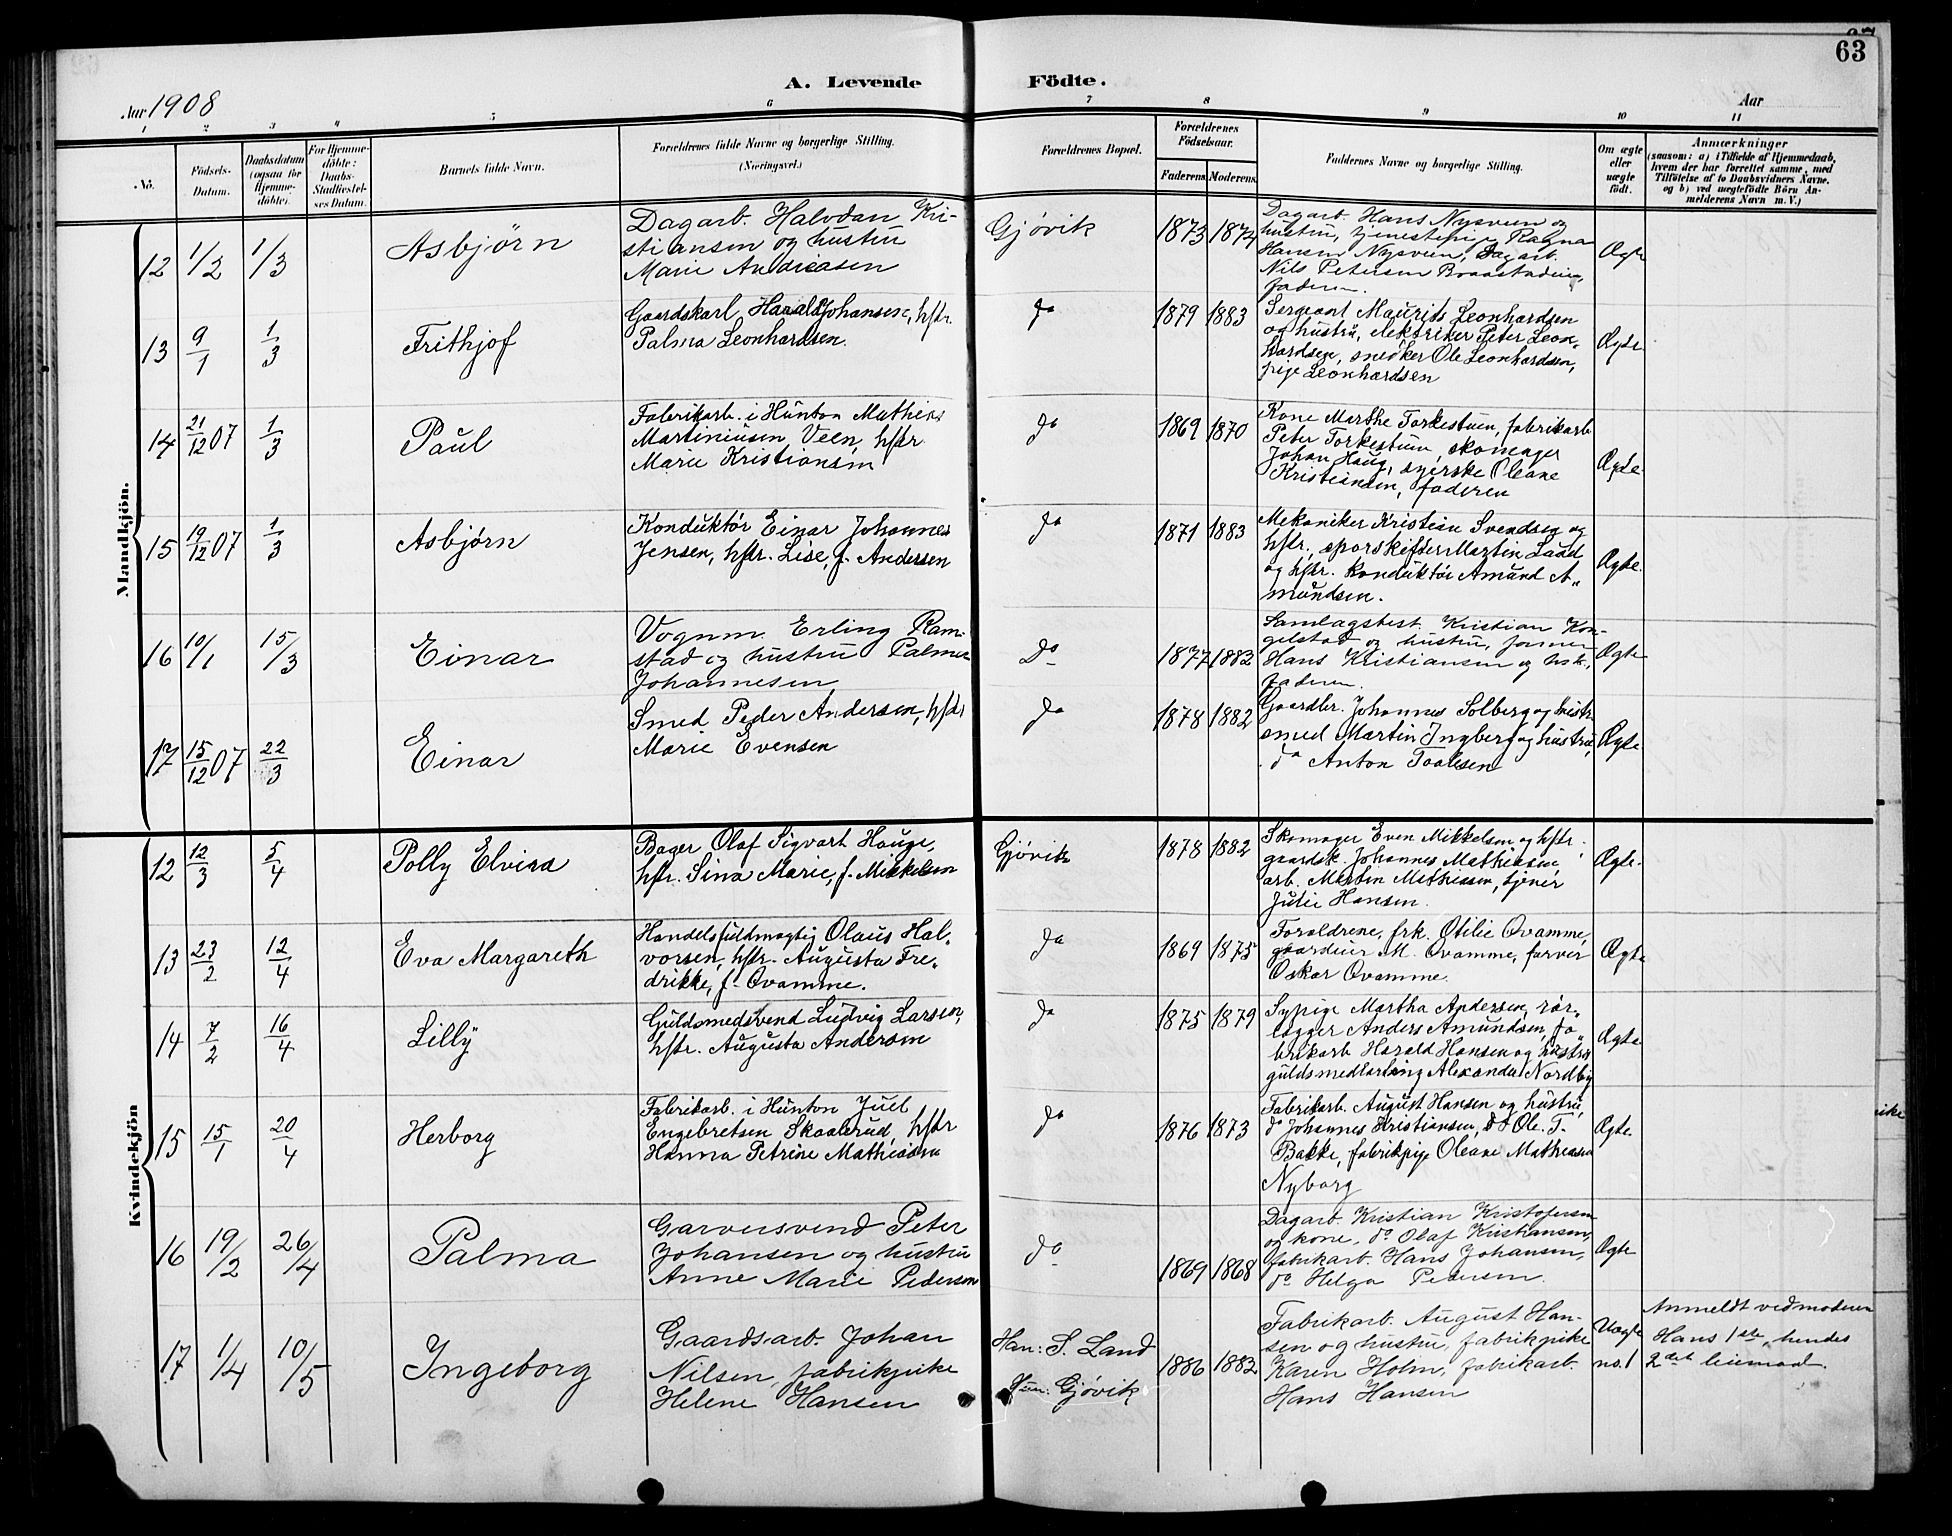 63
A. Levende Födte.
Aar 1908
Aar
1 2 3 4 5 6 7 8 9 10 11
No.
Födsels-
Datum.
Daabsdatum
(ogsaa for
Hjemme-
döbte).
For Hjemme-
döbte:
Daabs-
Stadfæstel-
ses Datum.
Barnets fulde Navn.
Forældrenes fulde Navne og borgerlige Stilling.
(Næringsvei.)
Forældrenes Bopæl.
Forældrenes
Födselsaar.
Faderens. Moderens.
Faddernes Navne og borgerlige Stilling.
Om ægte
eller
uægte
födt.
Anmærkninger
(saasom: a) i Tilfælde af Hjemmedaab,
hvem der har forrettet samme, med
Tilföielse af to Daabsvidners Navne,
og b) ved uægtefödte Börn An-
melderens Navn m. V.)
Mandkjön.
12 1/2 1/3 Asbjørn
Dagarb. Halvdan Kri-
stiansen og hustru
Marie Andreasen
Gjøvik 1873 1874
Dagarb. Hans Nysveen og
hustru, tjenestepige Ragna
Hansen Nysveen, Dagarb.
Nils Petersen Braastadeie,
faderen.
Ægte
13 9/1 1/3 Frithjof
Gaardskarl Harald Johansen, hstr.
Palma Leonhardsen.
do 1879 1883
Sergeant Maurits Leonhardsen
og hustru, elektriker Peter Leon-
hardsen, snedker Ole Leonhardsen,
pige Leonhardsen
Ægte.
14 21/12 07 1/3 Paul
Fabrikarb. i Hunton Mathias
Martiniusen Veen, hstr.
Marie Kristiansen
do 1869 1870
Kone Marthe Torkestuen, fabrikarb.
Peter Torkestuen, skomager
Johan Haug, syerske Oleane
Kristiansen, faderen
Ægte.
15 19/12 07 1/3 Asbjørn
Konduktør Einar Johannes
Jensen, hstr. Lise, f. Andersen
do 1871 1883
Mekaniker Kristian Svendsen og
hstr., sporskifter Martin Laad
og hstr. konduktør Amund A-
mundsen.
Ægte.
16 10/1 15/3 Einar
Vognm. Erling Ram-
stad og hustru Palma
Johannesen
Do 1877 1882
Samlagsbest. Kristian Kon-
gelstad og hustru, former
Hans Kristiansen og hstr.,
faderen.
Ægte
17 15/12 07 22/3 Einar
Smed Peder Andersen, hstr
Marie Evensen
do 1878 1882
Gaardbr. Johannes Solberg og hustr.
smed Martin Ingberg og hustru,
do Anton Paalsen
Ægte
Kvindekjön
12 12/3 5/4 Polly Elvira
Bager Olaf Sigvart Hauge,
hstr. Sina Marie, f. Mikkelsen
Gjøvik 1878 1882
Skomager Even Mikkelsen og hstr.
gaardsk. Johannes Mathiesen,
arb. Morten Mathiesen, tjener
Julie Hansen.
Ægte.
13 23/2 12/4 Eva Margareth
Handelsfuldmægtig Olaus Hal-
vorsen, hstr. Augusta Fre-
drikke, f. Qvamme.
do 1869 1875
Forældrene, frk. Otilie Qvamme,
gaardeier M. Qvamme, farver
Oskar Qvamme.
Ægte
14 7/2 16/4 Lilly
Guldsmedsvend Ludvig Larsen,
hstr. Augusta Andersen
do 1875 1879
Sypige Martha Andersen, rør-
lægger Anders Amundsen, fa-
brikarb Harald Hansen og hustru
guldsmedlærling Alexander Nordby
Ægte
15 15/1 20/4 Herborg
Fabrikarb. i Hunton Juel
Engebretsen Skaalerud, hstr
Hanna Petrine Mathiasen
do 1876 1873
Fabrikarb. August Hansen og hustru,
do Johannes Kristiansen, do Ole T.
Bakke, fabrikpige Oleane Mathiasen
Nyborg
Ægte.
16 19/2 26/4 Palma
Garversvend Peter
Johansen og hustru
Anne Marie Pedersen
do 1869 1868
Dagarb. Kristian Kristofersen
og kone, do Olaf Kristiansen,
fabrikarb. Hans Johansen,
do Helga Pedersen.
Ægte
17 1/4 10/5 Ingeborg
Gaardsarb. Johan
Nilsen, fabrikpike
Helene Hansen
Han: S. Land
Hun: Gjøvik
1886 1882
Fabrikarb. August Han-
sen og hustru, fabrikpike
Karen Holm, fabrikarb.
Hans Hansen
Uægte
no. 1
Anmeldt ved moderen
Hans 1ste, hendes
2det leiemaal.